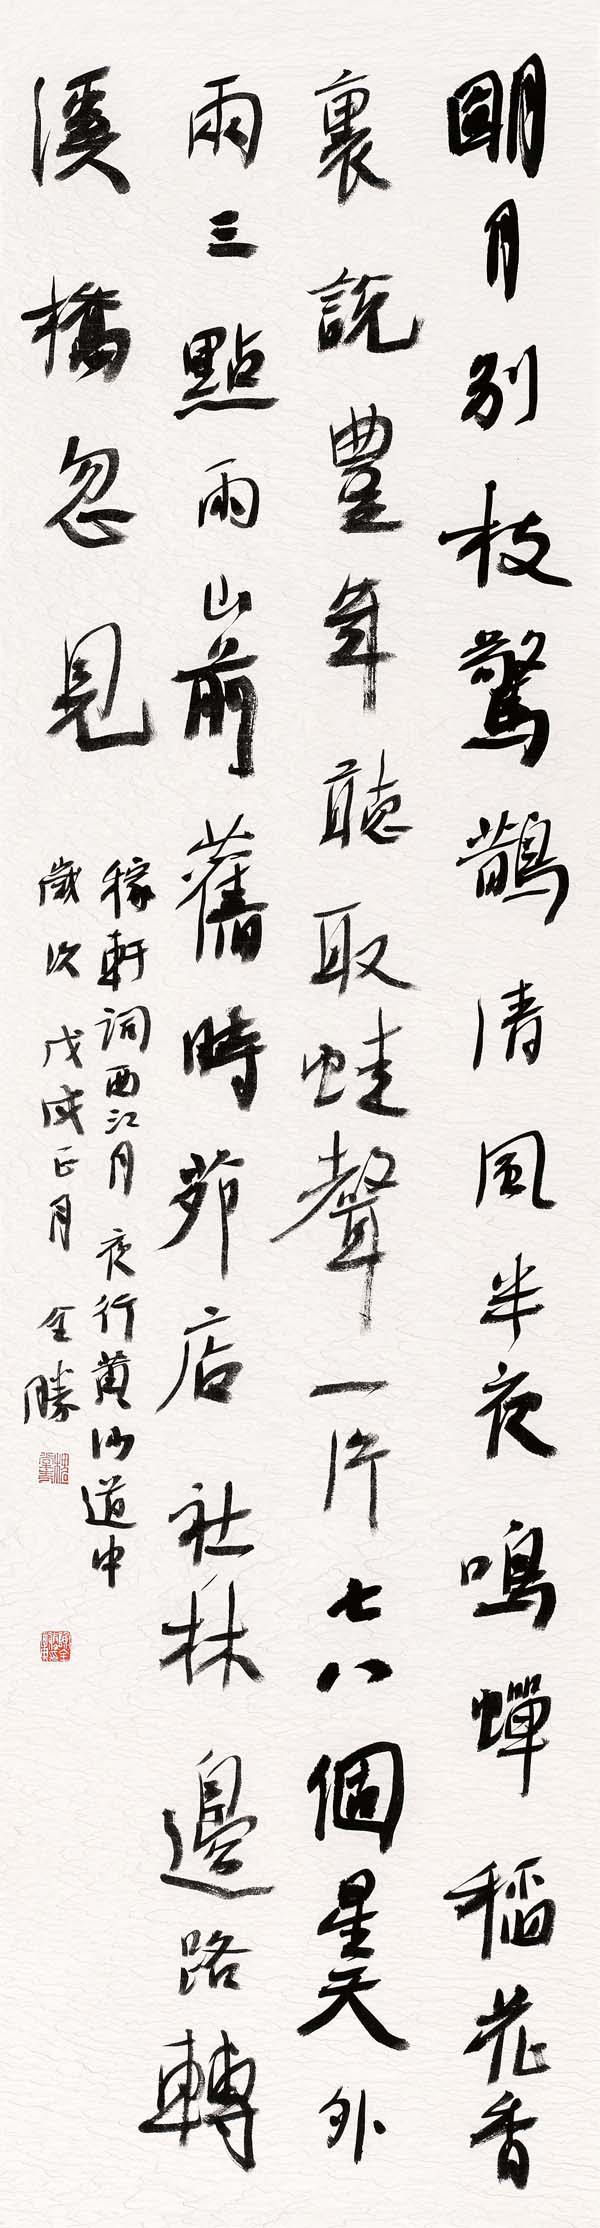 明月别枝驚鵲清風半夜鳴蟬稻花香
裏説豐年聽取蛙聲一片七八個星天外
兩三點雨山前舊時茆店社林邊路轉
溪橋忽見
稼軒詞西江月夜行黄沙道中
歲次戊戌正月全勝